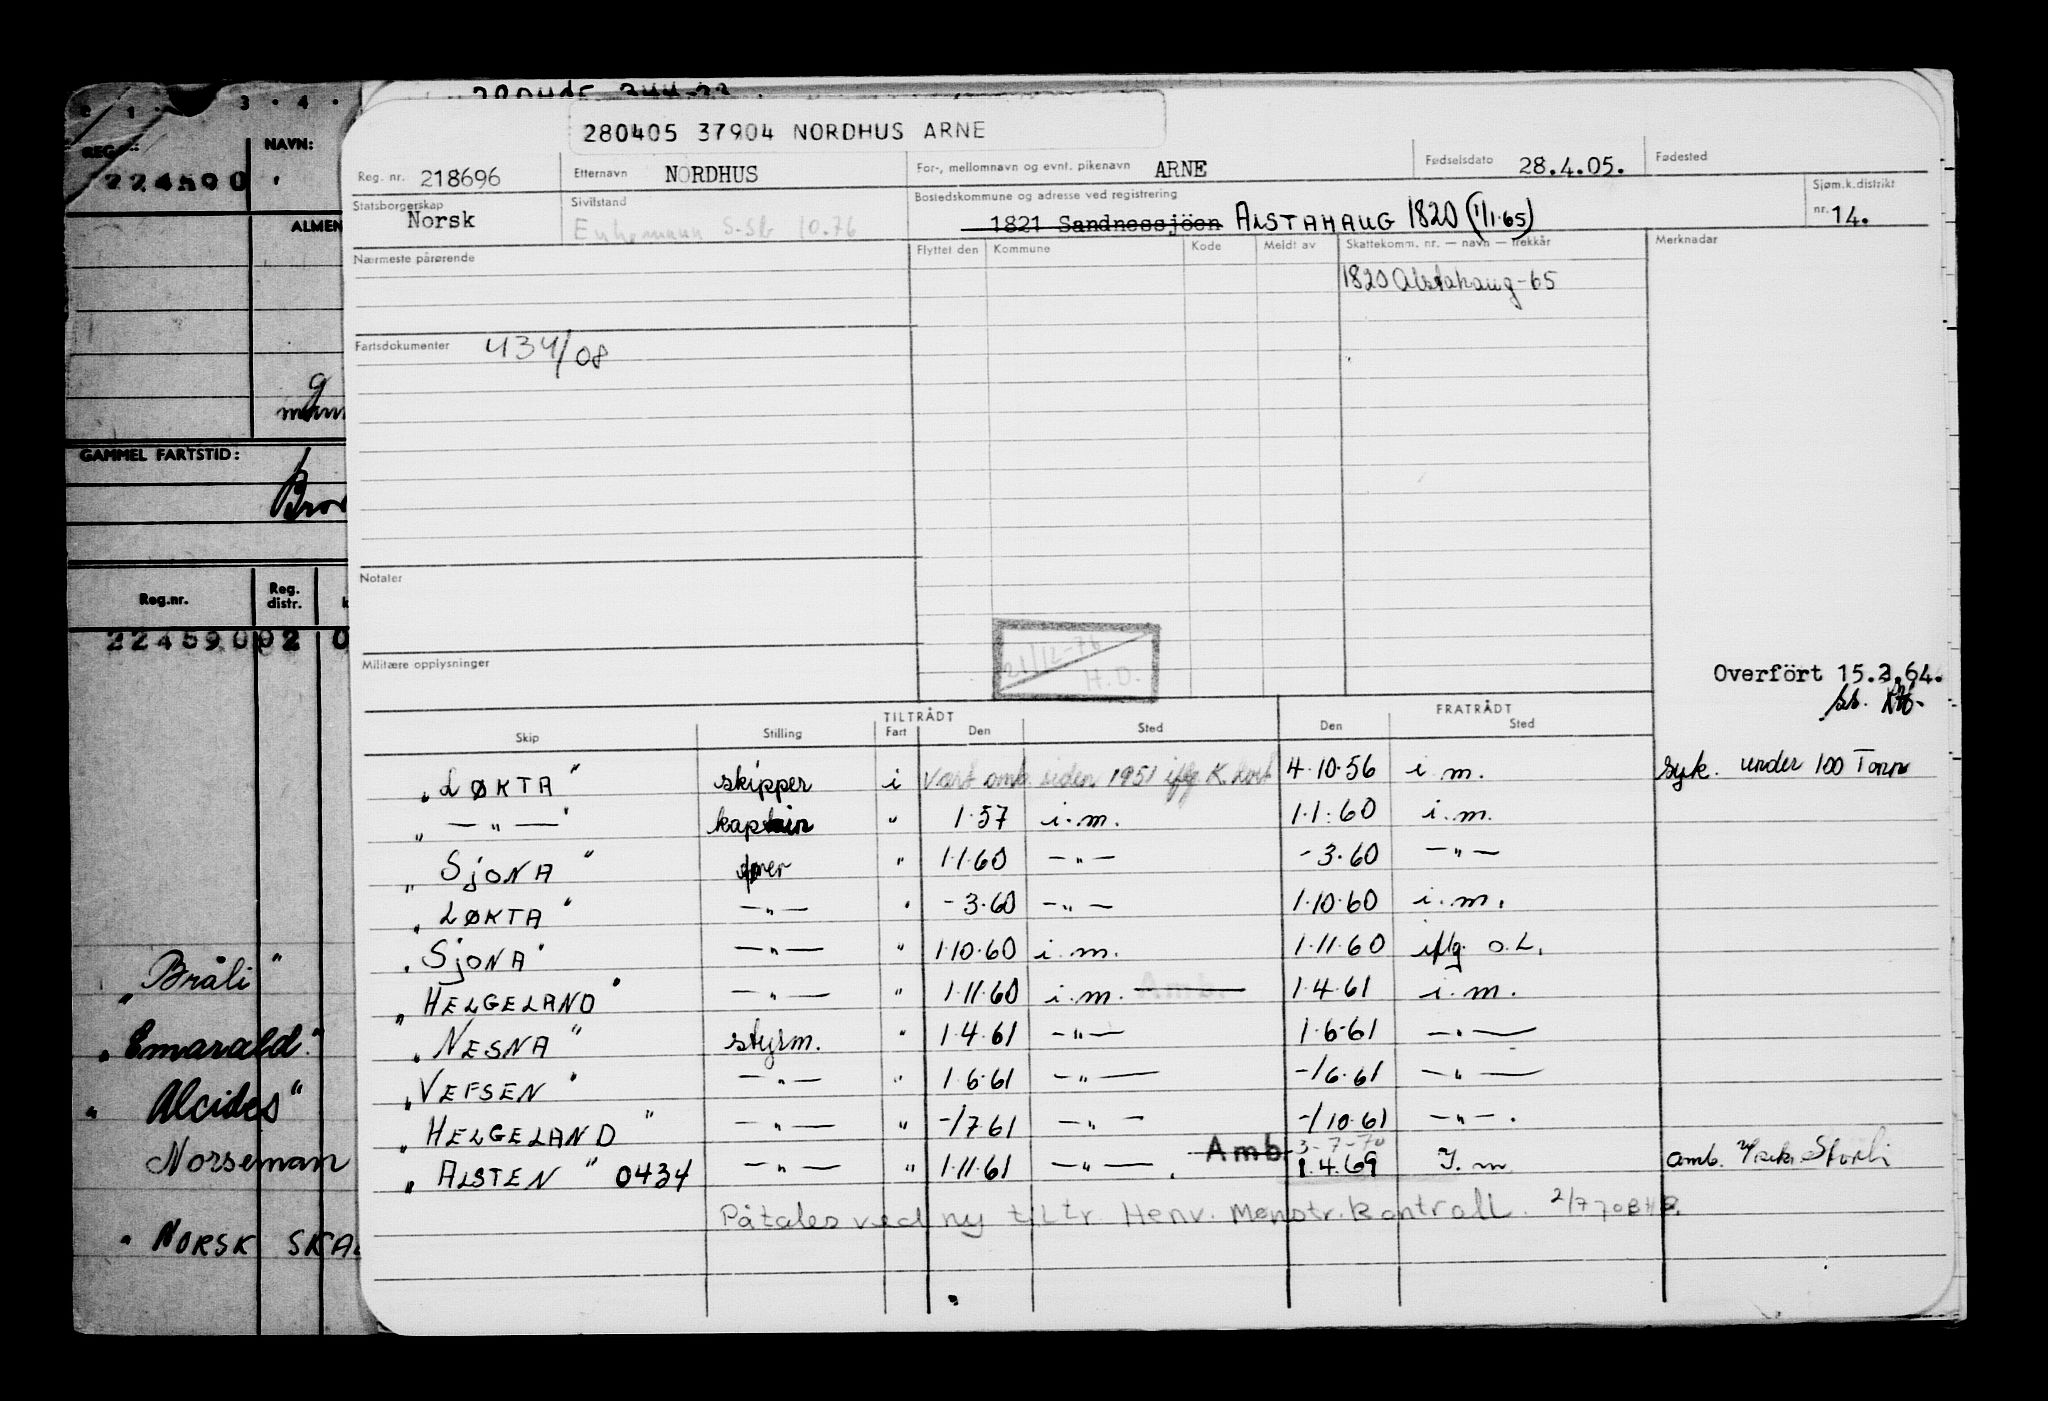 3 · 4 ·
REG.
NAVN:
224590
ALMEN
GAMMEL FARTSTID:
Reg.nr.
Reg. distr.
22459092 0
"Bråli"
"Emarald"
"Alcides"
Norseman
"NORSK SKA
280405 37904 NORDHUS ARNE
Reg. nr. 218696 Etternavn NORDHUS For-, mellomnavn og evnt. pikenavn ARNE Fødselsdato 28.4.05. Fødested
Statsborgerskap Norsk Sivilstand Enkemann S-Sk 10.76 Bostedskommune og adresse ved registrering 1821 Sandnessjöen ALSTAHAUG 1820 (1/1·65) Sjøm.k.distrikt nr. 14.
Nærmeste pårørende Flyttet den Kommune Kode Meldt av Skattekomm. nr. — navn — trekkår Merknader
1820 Alstahaug-65
Fartsdokumenter 434/08
Notater
Militære opplysninger
21/12-76 H.O.
Overfört 15.3.64.
TILTRÅDT FRATRÅDT
Skip Stilling Fart Den Sted Den Sted
"LØKTA" skipper i Vært omb. siden 1951 iflg K. 4·10·56 i m. syk. under 100 Tonn
" — " — " kaptein " 1·57 i.m. 1·1·60 i.m.
"SJONA" " 1·1·60 — " — - 3·60 — " —
"LØKTA" — " — " - 3·60 — " — 1·10·60 i.m.
"SJONA" — " — " 1·10·60 i.m. 1·11·60 iflg. O.L.
"HELGELAND" — " — " 1·11·60 i.m. Amb. 1·4·61 i.m.
"NESNA" styrm. " 1·4·61 — " — 1·6·61 — " —
"VEFSEN" — " — " 1·6·61 — " — -/6·61 — " —
"HELGELAND" — " — " -/7·61 — " — -/10·61 — " — .
"ALSTEN" 0434 — " — " 1·11·61 — " — . Amb. 3-7-70 1.4.69 I. m amb. Storli
Påtales ved ny tiltr Henv. Mønstr.kontroll. 2/7 70